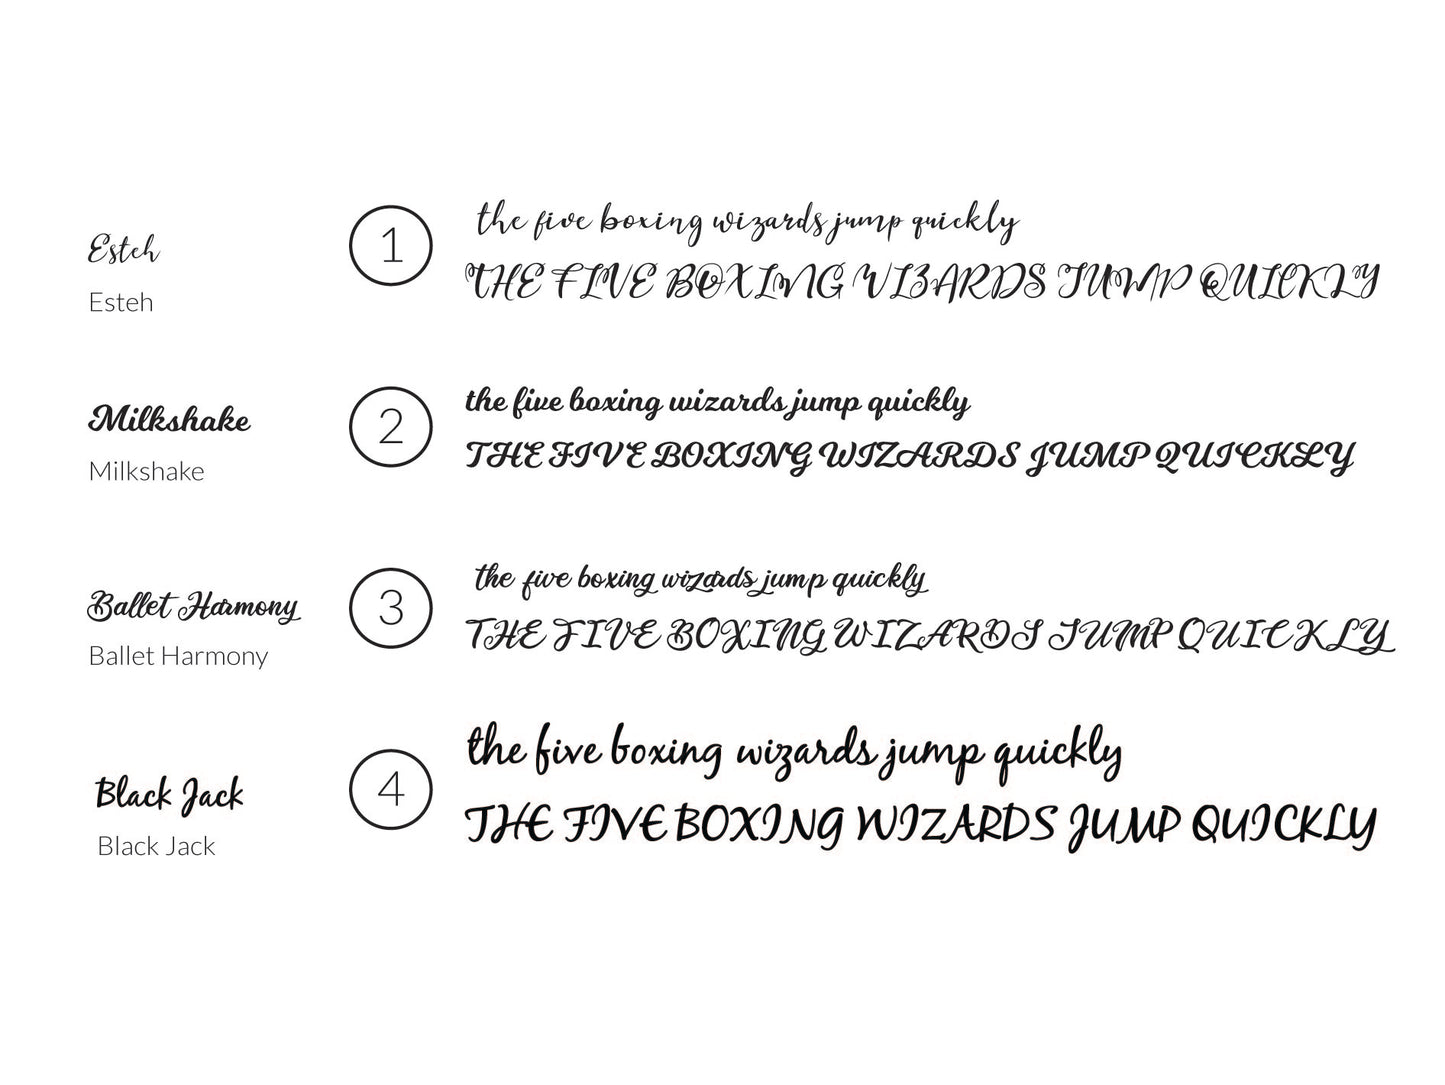 Esteh
Esteh
1
the five boxing wizards jump quickly
THE FIVE BOXING WIZARDS JUMP QUICKLY
Milkshake
Milkshake
2
the five boxing wizards jump quickly
THE FIVE BOXING WIZARDS JUMP QUICKLY
Ballet Harmony
Ballet Harmony
3
the five boxing wizards jump quickly
THE FIVE BOXING WIZARDS JUMP QUICKLY
Black Jack
Black Jack
4
the five boxing wizards jump quickly
THE FIVE BOXING WIZARDS JUMP QUICKLY